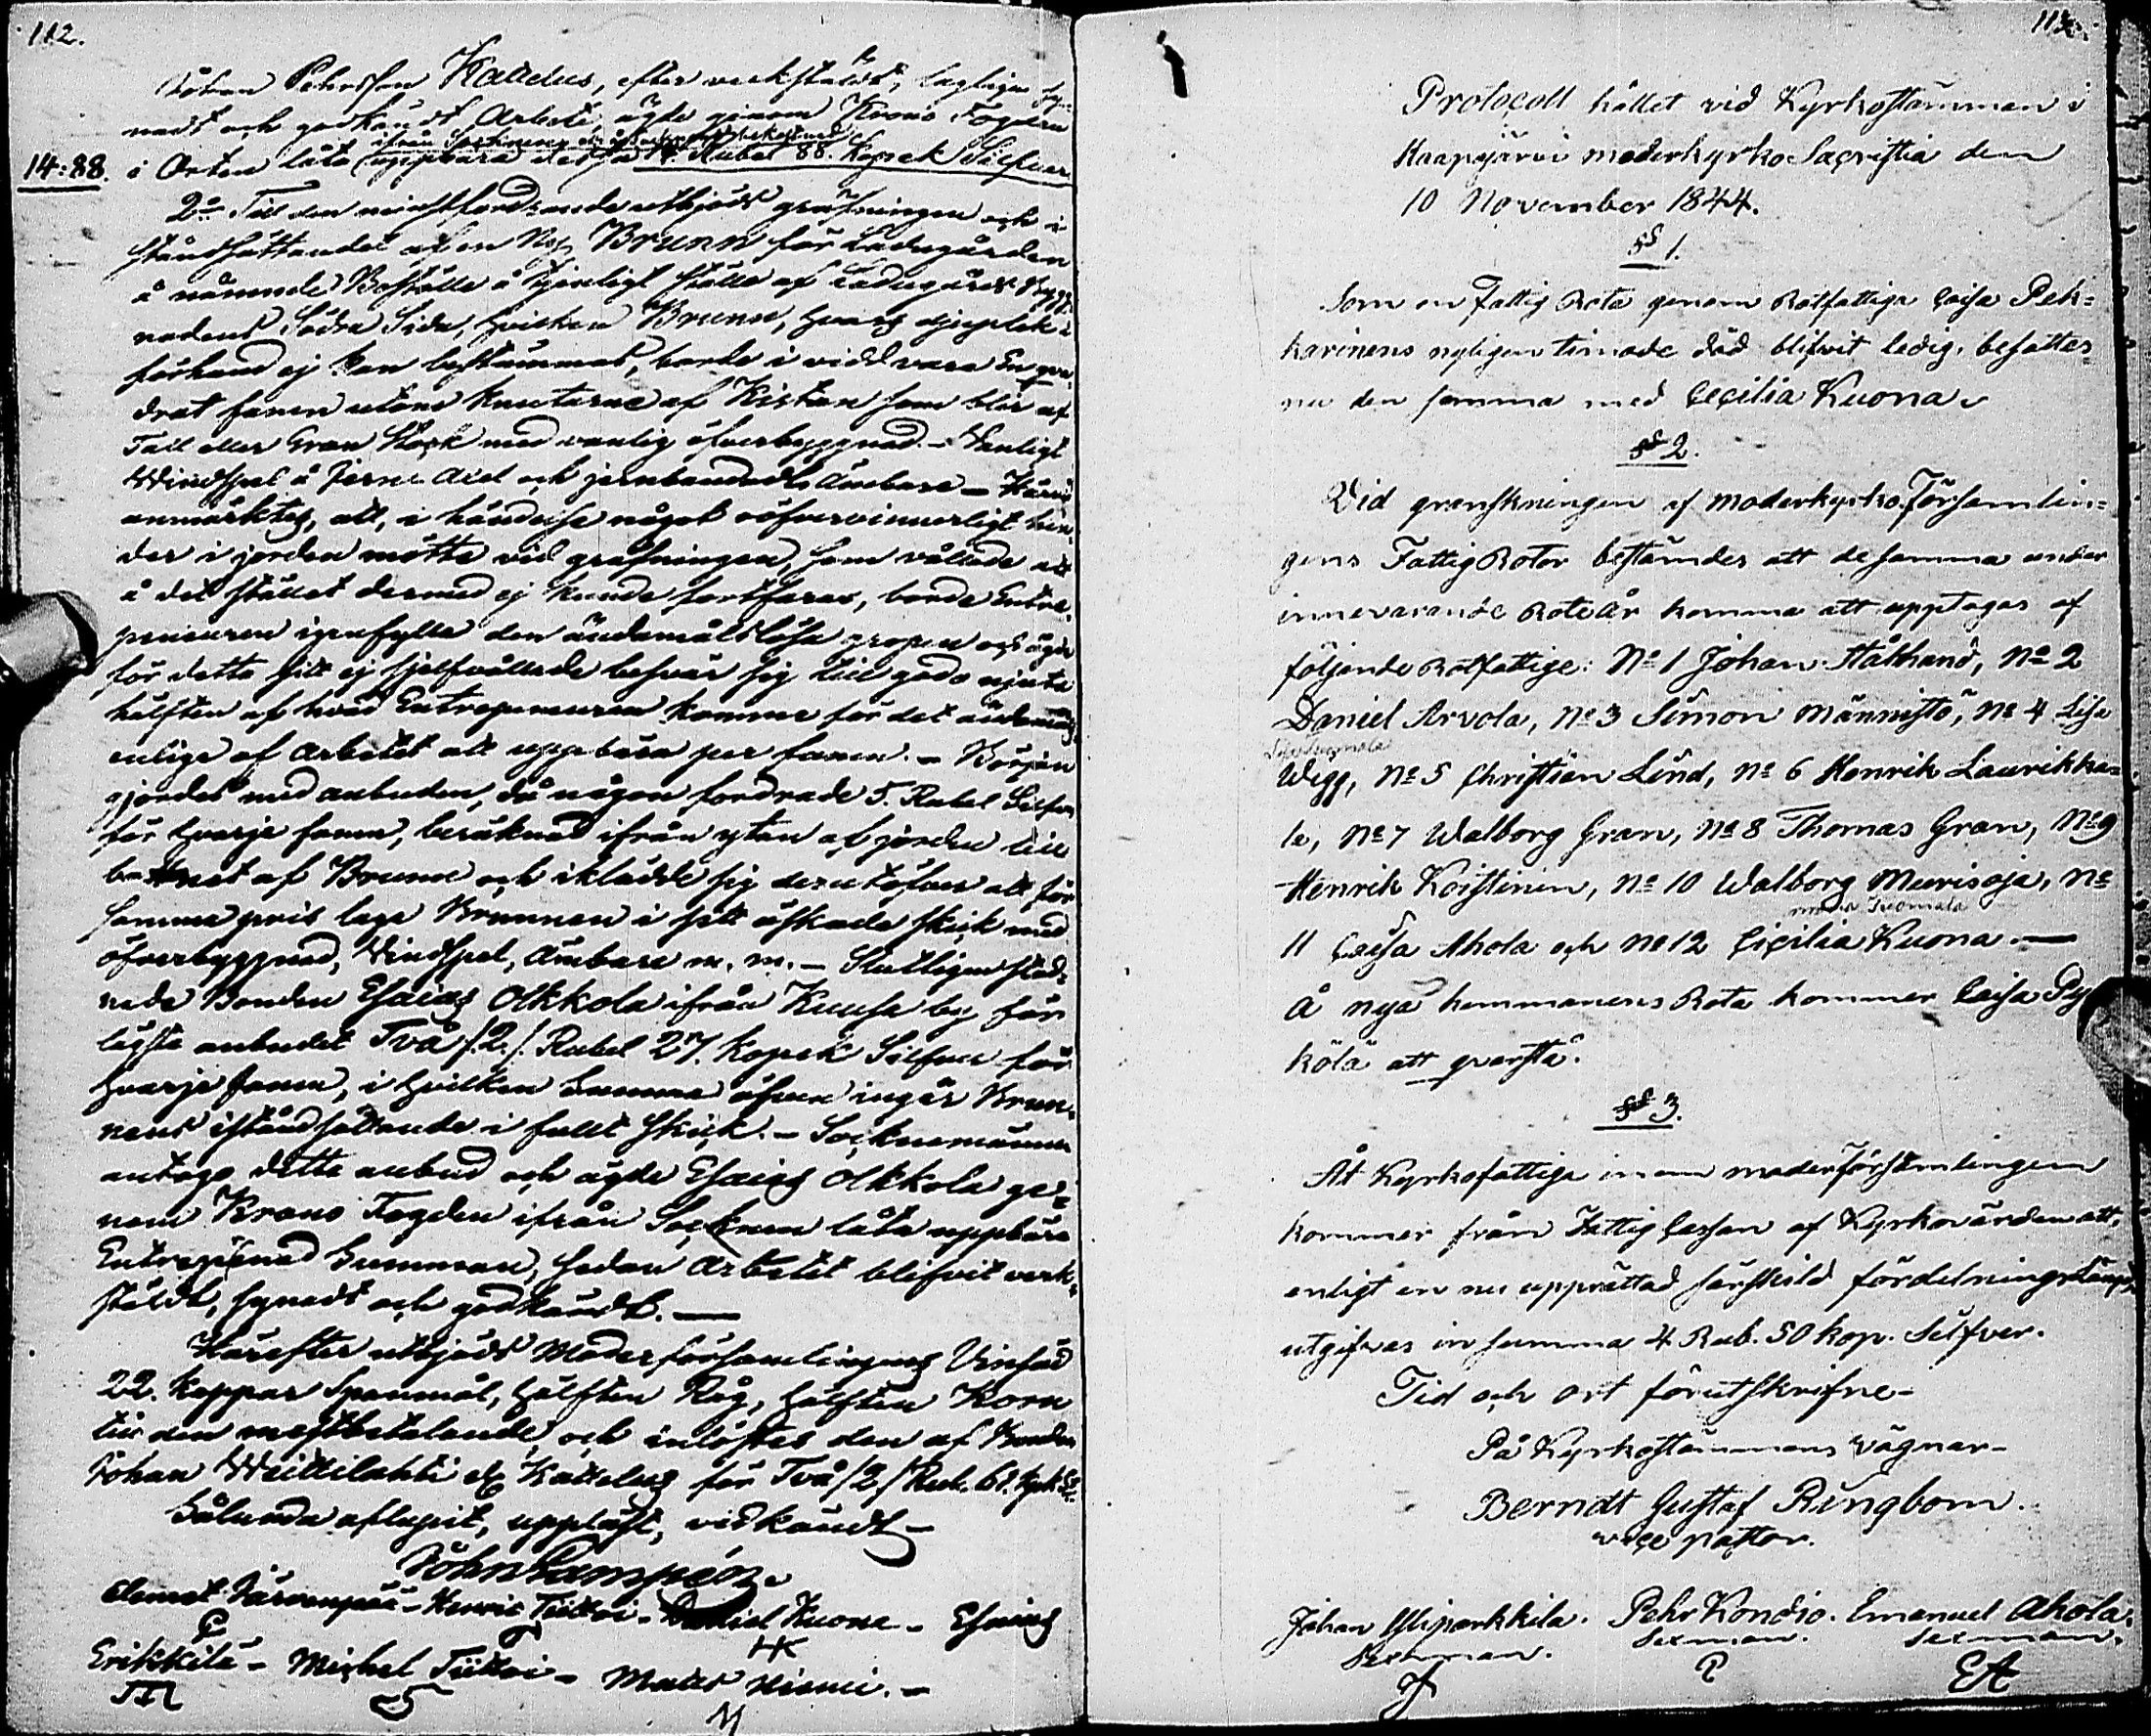 112.
Johan Pehrsson Kattelus, efter verkstäldt, lagligen sy-
nadt och godkändt Arbete, ägde genom Krono Fogden
ifrån Socknen
14:88. i Orten låta uppbära dessa 14. Rubel 88. Kopek Silfver
2:o Till den minstfordrande utbjöds gräfningen och i
ståndsättandet af en Ny Brunn för Ladugården
å nämnde Boställe å tjenligt ställe af Ladugårds Bygg-
nadens Södra Sida, hvilken Brunn, hvars djuplek i
förhand ej kan bestämmas, borde i vidd vara En qva-
drat famn utom knutarne af Kistan som blir af
Tall eller Gran Stock med vanlig öfverbyggnad. - Vanligt
Windspel å Jern Axel och jernbandade Ämbare - Härvid
anmärktes, att, i händelse något oöfvervinnerligt hin-
der i jorden mötte vid gräfningen, som vållade att
å det stället dermed ej kunde fortfaras, borde Entre-
preneuren igenfylla den ändamålslösa gropen och ägde
för detta sitt ej sjelfvållade besvär sig till godo njuta
hälften af hvad Entrepreneuren komme för det ändamåls-
enliga af arbetet att uppbära per famn. - Början
gjordes med anbuden, då någon fordrade 5. Rubel Silfver
för hvarje famn, beräknad ifrån ytan af jorden till
bottnet af Brunn och iklädde sig derutöfver att för
samma pris laga Brunnen i sitt äskade skick med
öfverbyggnad, Windspel, Ämbare m. m. - Slutligen stad-
nade Bonden Esaias Olkkola ifrån Kuusa by för
lägsta anbudet Två /:2:/ Rubel 27. Kopek Silfver för
hvarje famn, i hvilken Summa äfven ingår Brun-
nens iståndsättande i fullt skick. - Socknemännen
antogo detta anbud och ägde Esaias Olkkola ge-
nom Krono Fogden ifrån Socknen låta uppbära
Entreprenad Summan, sedan Arbetet blifvit verk-
stäldt, synadt och godkändt. —
Härefter utbjöds Moderförsamlingens
22. Kappar Spanmål, hälften Råg, hälften Korn
till den mestbetalande och inlöstes den af Bonden
Johan Weittilahti Kattelus för Två /2/ Rub. 61. Kop. S:r
Sålunda aflupit, uppläst, vidkändt -
Johan
Clemet Järvenpää - Henric Tiittoi - Daniel Kuona - Esaias
HK
Erikkilä - Michel Tiittoi - Matts Niemi. -
M
113.
Protocoll hållet vid Kyrkostämman i
Haapajärvi moderkyrko Sacristia den
10 November 1844.
§ 1.
Som en Fattig Rota genom Rotfattiga Caisa Pek=
karinens nyligen timade död blifvit ledig, besattes
nu den samma med Cecilia Kuona.
§ 2.
Vid granskningen af moderkyrko Församlin=
gens Fattig Rotor bestämdes att desamma under
innevarande Roteår komma att upptagas af
följande Rotfattige: No 1 Johan Stålhand, No 2
Daniel Arvola, No 3 Simon Männistö, No 4 Lisa
Wegg, No 5 Christian Lind, No 6 Henrik Laurikka=
la, No 7 Walborg Gran, No 8 Thomas Gran, No 9
Henrik Koistinen, No 10 Walborg Meurisoja, No
Tuomala
11 Caisa Ahola och No 12 Cicilia Kuona. —
Å nya hemmanens Rota kommer Caisa Py
kölä att qvarstå.
§ 3.
Åt Kyrkofattiga inom moderförsamlingen
kommer från Fattig Cassan af Kyrkovärden att,
enligt en nu upprättad särskild fördelningslängd
utgifvas in summa 4 Rub. 50 kop. Silfver.
Tid och ort förutskrifne-
På Kyrkostämmans vägnar-
Berndt Gustaf Ringbom.
vice pastor.
Johan Yliparkkila. Pehr Kondio. Emanuel Ahola.
Sexman. Sexman. Sexman.
P EA